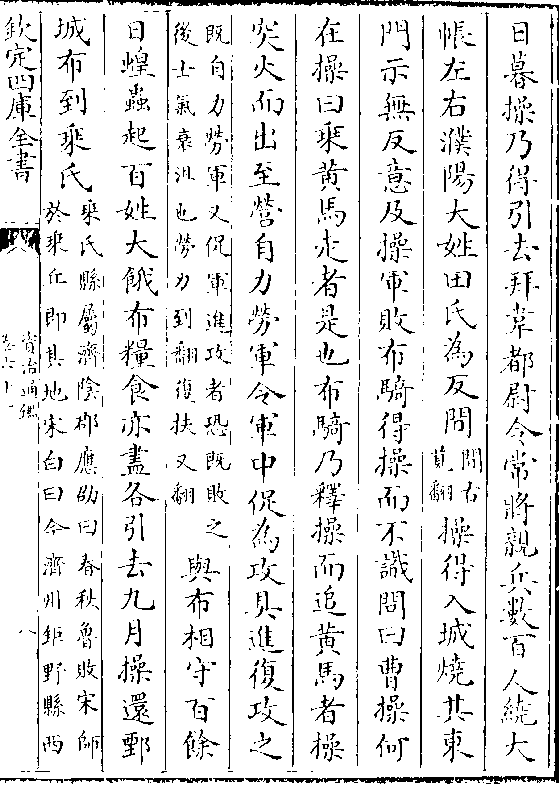 日暮操乃得引去拜韋都尉令常將親兵數百人繞大
帳左右濮陽大姓田氏為反間間古莧翻操得入城燒其東
門示無反意及操軍敗布騎得操而不識問曰曹操何
在操曰乘黃馬走者是也布騎乃釋操而追黃馬者操
突火而出至營自力勞軍令軍中促為攻具進復攻之
既自力勞軍又促軍進攻者恐既敗之後士氣衰沮也勞力到翻復扶又翻與布相守百餘
日蝗蟲起百姓大餓布糧食亦盡各引去九月操還鄄
城布到乘氏乘氏縣屬濟陰郡應劭曰春秋魯敗宋師於乘丘即其地宋白曰今濟州鉅野縣西
欽定四庫全書
資治通鑑
卷六十一
八